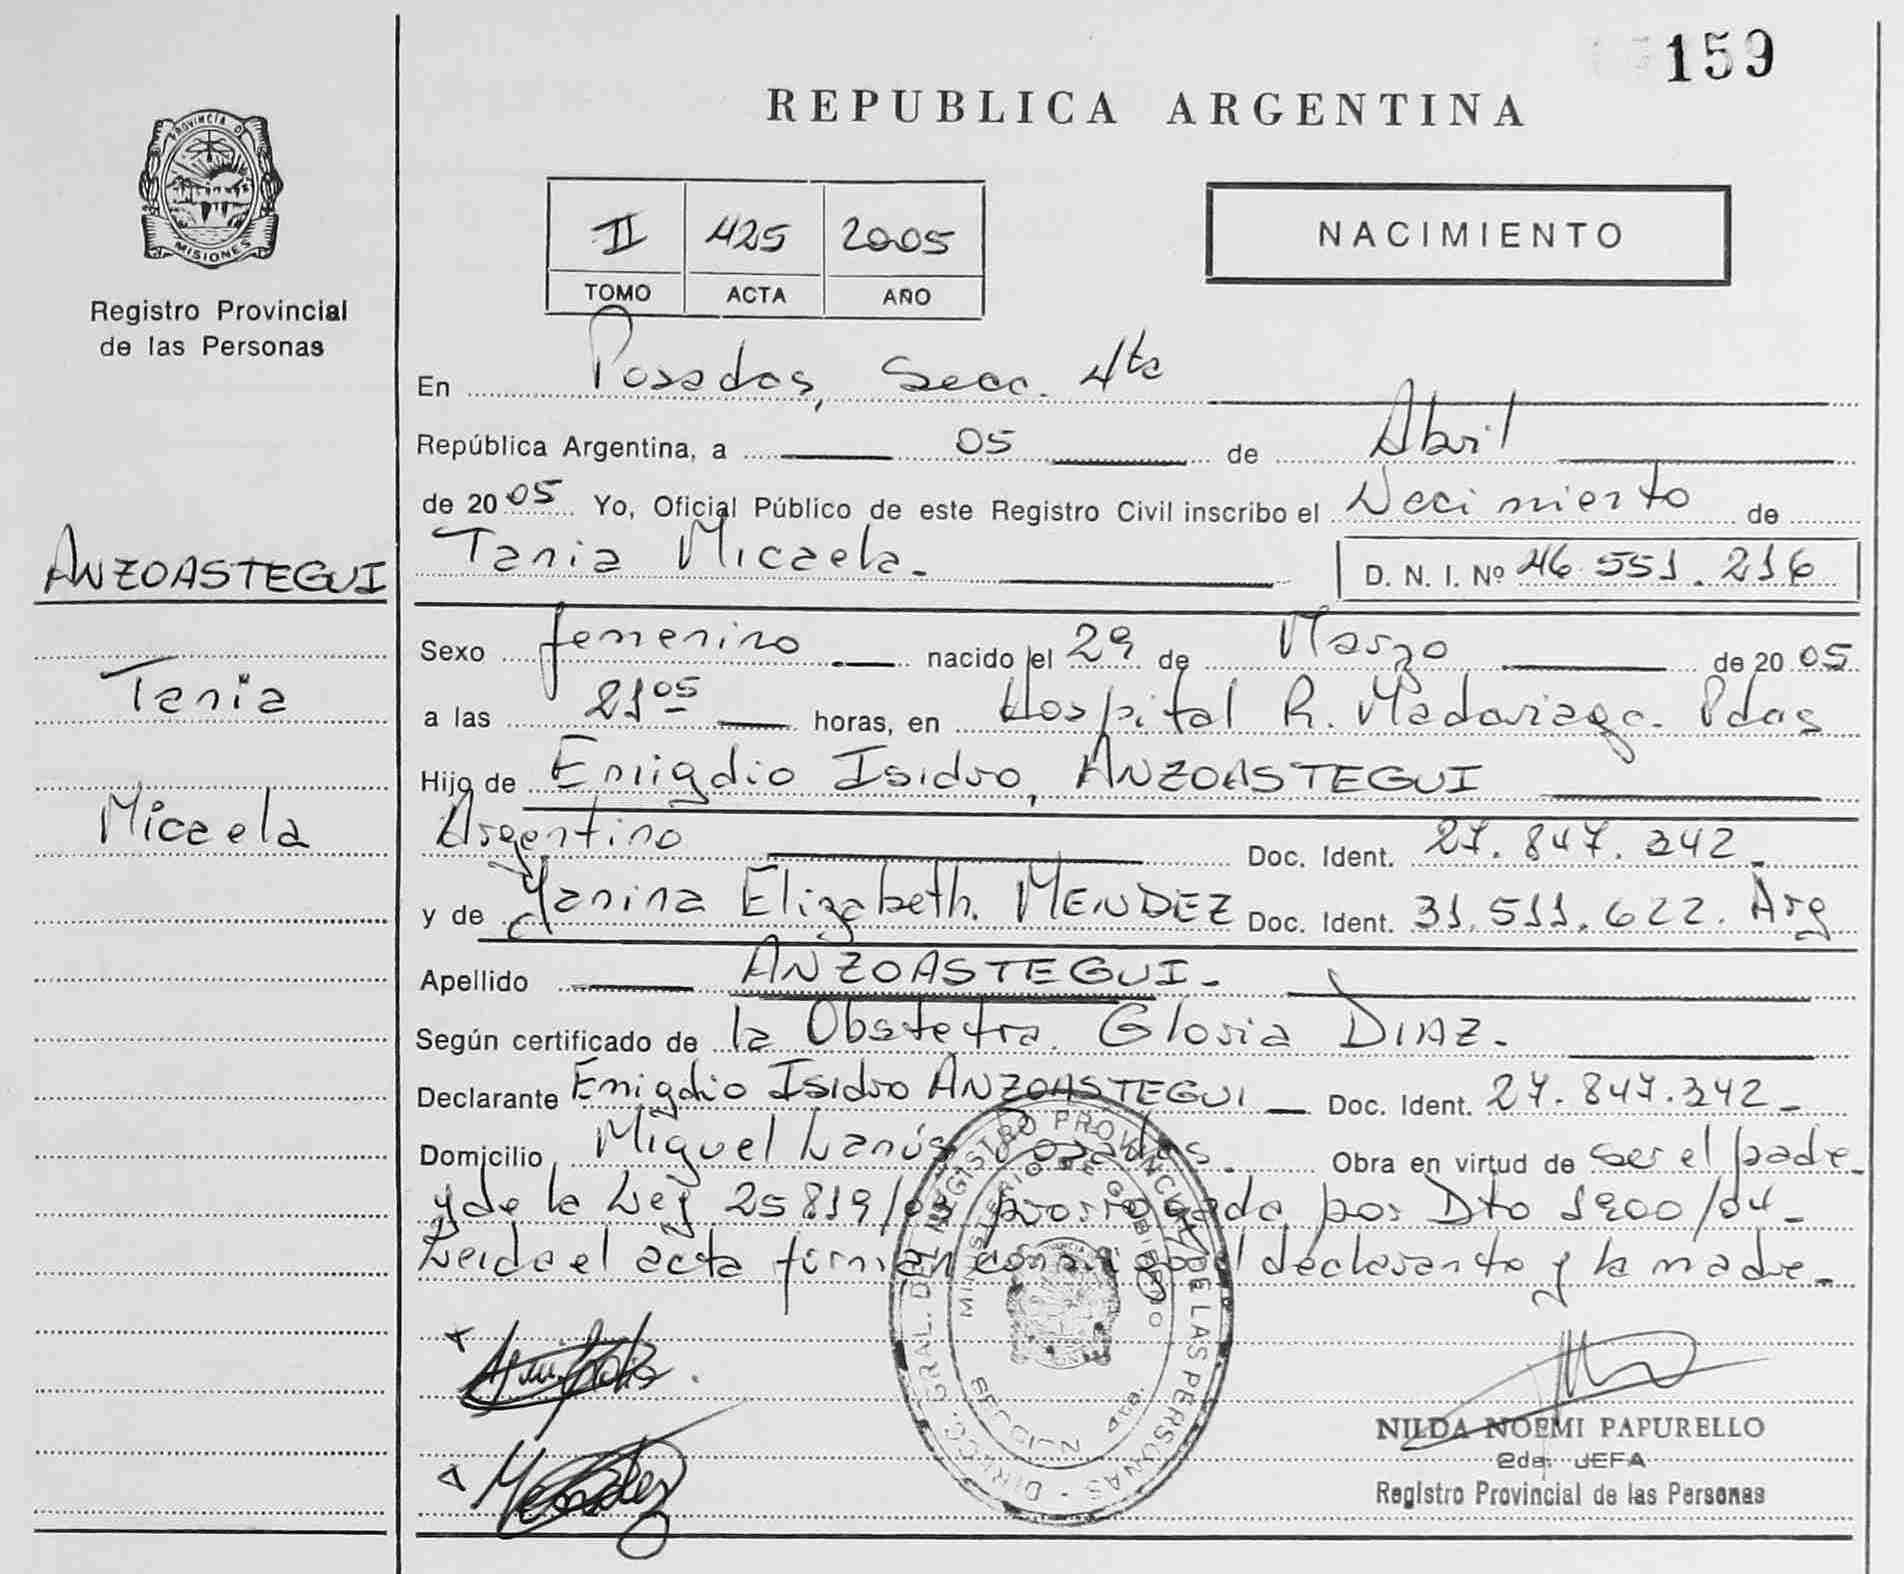 159
REPUBLICA ARGENTINA
PROVINCIA DE
MISIONES
Registro Provincial
de las Personas
II 425 2005
TOMO ACTA AÑO
NACIMIENTO
En Posadas, Secc. 4ta
República Argentina, a 05 de Abril
de 2005 Yo, Oficial Público de este Registro Civil inscribo el Nacimiento de
Tania Micaela. D. N. I. Nº 46.551.216
ANZOASTEGUI
Tania
Micaela
Sexo femenino nacido el 29 de Marzo de 2005
a las 21 05 horas, en Hospital R. Madariaga. Pdas
Hijo de Emigdio Isidro, ANZOASTEGUI
Argentino Doc. Ident. 27.847.342
y de Yanina Elizabeth. MENDEZ Doc. Ident. 31.511.622. Arg
Apellido ANZOASTEGUI.
Según certificado de la Obstetra. Gloria DIAZ.
Declarante Emigdio Isidro ANZOASTEGUI Doc. Ident. 27.847.342
Domicilio Miguel Lanús Posadas. Obra en virtud de ser el padre
y de la Ley 25819/03 prorrogada por Dto 1900/04
Leida el acta firman conmigo el declarante y la madre
DIRECC. GRAL. DEL REGISTRO PROVINCIAL DE LAS PERSONAS
MINISTERIO DE GOBIERNO
SECCION 4ta.
Mendez
NILDA NOEMI PAPURELLO
2da. JEFA
Registro Provincial de las Personas